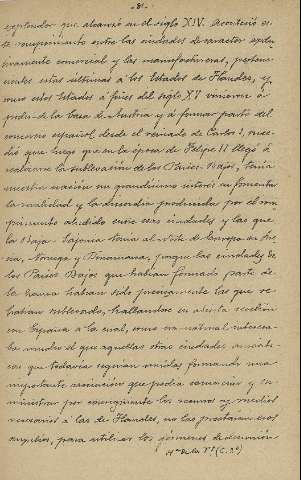 - 81 -
esplendor que alcanzó en el siglo XIV. Acaeció es-
te rompimiento entre las ciudades de caracter esclu-
sivamente comercial y las manufactureras, pertene-
cientes estas ultimas á los Estados de Flandes, y
como estos Estados á fines del siglo XV vinieron á
poder de la Casa de Austria y á formar parte del
concurso español, desde el reinado de Carlos I, suce-
dió que luego que en la época de Felipe II llegó á
realizarse la sublevación de los Paises Bajos, tenia
nuestra nación un grandisimo interés en fomentar
la rivalidad y la discordia producida por el rom-
pimiento aludido entre esas ciudades y las que
la Baja Sajonia tenia al Norte de Europa en Sue-
cia, Noruega y Dinamarca, porque las ciudades de
los Paises Bajos que habian formado parte de
la Hansa habian sido precisamente las que se
habian sublevado, hallandose en abierta rebelión
con España á la cual, como era natural, interesa-
ba mucho el que aquellas otras ciudades
que todavia seguian unidas formando una
importante asociación que podia comerciar y su-
ministrar por consiguiente los recursos y medios
necesarios á las de Flandes, no les prestaran esos
auxilios, para utilizar los gérmenes de desunión
de la (C. 2º)